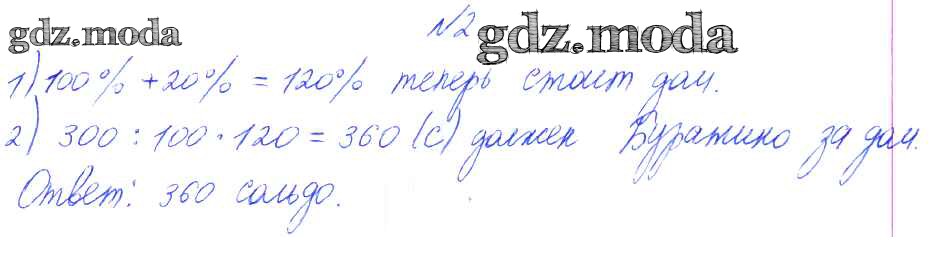 gdz.moda
№2 gdz.moda
1) 100% + 20% = 120% теперь стоит дом.
2) 300 : 100 · 120 = 360 (с) должен Буратино за дом.
Ответ: 360 сольдо.